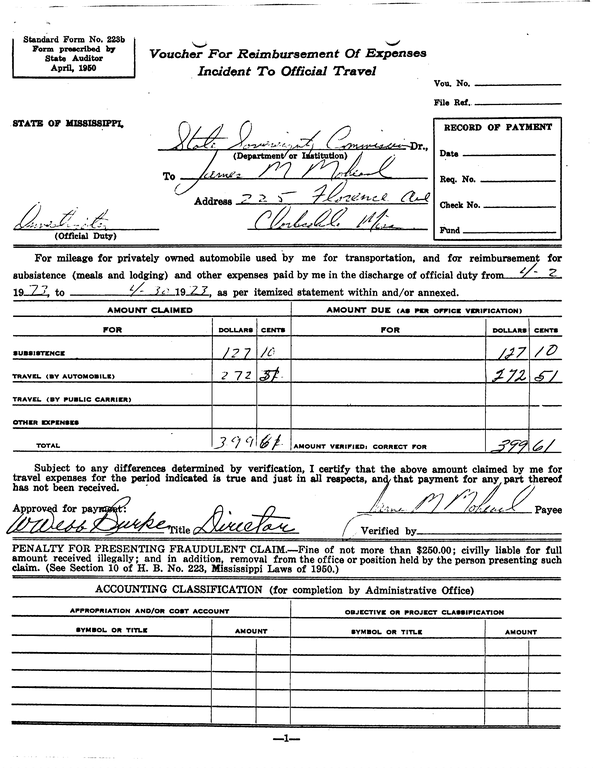 Standard Form No. 223b
Form prescribed by
State Auditor
April, 1950
Voucher For Reimbursement Of Expenses
Incident To Official Travel
Vou. No.
File Ref.
STATE OF MISSISSIPPI,
State Sovereignty Commission Dr.,
(Department or Institution)
To James M Mohead
Address 225 Florence Ave
Clarksdale Miss
Investigator
(Official Duty)
RECORD OF PAYMENT
Date
Req. No.
Check No.
Fund
For mileage for privately owned automobile used by me for transportation, and for reimbursement for
subsistence (meals and lodging) and other expenses paid by me in the discharge of official duty from 4-2
1973, to 4-30 1973, as per itemized statement within and/or annexed.
AMOUNT CLAIMED AMOUNT DUE (AS PER OFFICE VERIFICATION)
FOR DOLLARS CENTS FOR DOLLARS CENTS
SUBSISTENCE 127 10 127 10
TRAVEL (BY AUTOMOBILE) 272 51 272 51
TRAVEL (BY PUBLIC CARRIER)
OTHER EXPENSES
TOTAL 399 61 AMOUNT VERIFIED; CORRECT FOR 399 61
Subject to any differences determined by verification, I certify that the above amount claimed by me for
travel expenses for the period indicated is true and just in all respects, and that payment for any part thereof
has not been received.
James M Mohead Payee
Approved for payment:
W Webb Burke Title Director
Verified by
PENALTY FOR PRESENTING FRAUDULENT CLAIM.—Fine of not more than $250.00; civilly liable for full
amount received illegally; and in addition, removal from the office or position held by the person presenting such
claim. (See Section 10 of H. B. No. 223, Mississippi Laws of 1950.)
ACCOUNTING CLASSIFICATION (for completion by Administrative Office)
APPROPRIATION AND/OR COST ACCOUNT OBJECTIVE OR PROJECT CLASSIFICATION
SYMBOL OR TITLE AMOUNT SYMBOL OR TITLE AMOUNT
—1—